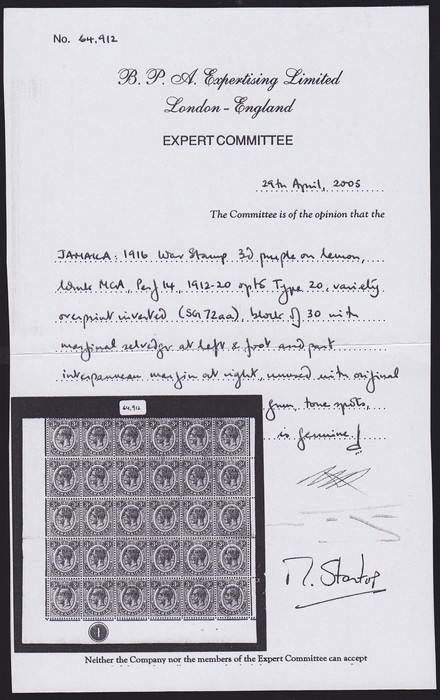 No. 64,912
B. P. A. Expertising Limited
London - England
EXPERT COMMITTEE
29th April, 2005
The Committee is of the opinion that the
JAMAICA: 1916 War Stamp 3d purple on lemon,
wmk MCA, Perf 14, 1912-20 optd Type 20, variety
overprint inverted (SG 72aa), block of 30 with
marginal selvedge at left & foot and part
interpanneau margin at right, unused with original
gum, tone spots,
is genuine
64,912
1
Neither the Company nor the members of the Expert Committee can accept